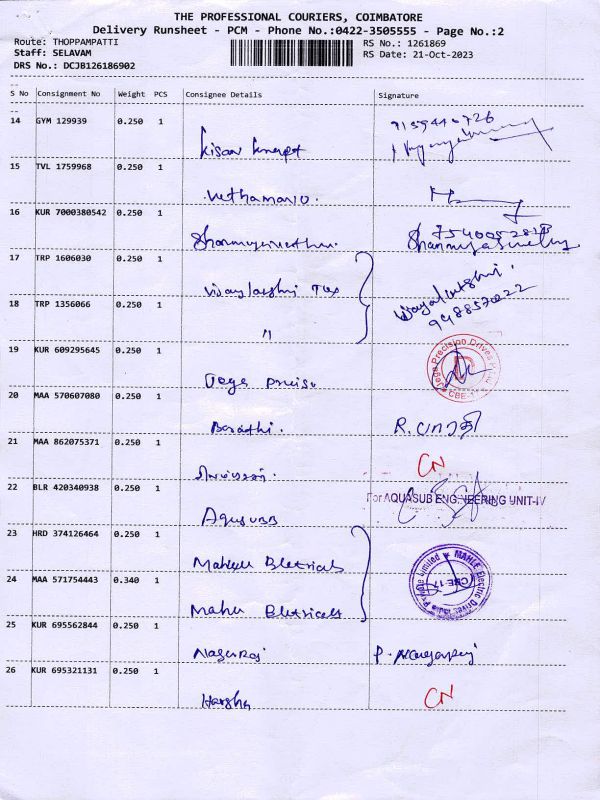 THE PROFESSIONAL COURIERS, COIMBATORE
Delivery Runsheet - PCM - Phone No.:0422-3505555 - Page No.:2
Route: THOPPAMPATTI RS No.: 1261869
Staff: SELAVAM RS Date: 21-Oct-2023
DRS No.: DCJB126186902
S No Consignment No Weight PCS Consignee Details Signature
14 GYM 129939 0.250 1
Kisan
15 TVL 1759968 0.250 1
16 KUR 7000380542 0.250 1
17 TRP 1606030 0.250 1
Vijaylakshmi Tex
18 TRP 1356066 0.250 1
"
9488570222
19 KUR 609295645 0.250 1
Precision Drives
CBE-17
20 MAA 570607080 0.250 1
Barathi. R. பாரதி
21 MAA 862075371 0.250 1
CN
22 BLR 420340938 0.250 1
For AQUASUB ENGINEERING UNIT-IV
Aquasub
23 HRD 374126464 0.250 1
Mahle Eletricals
24 MAA 571754443 0.340 1
Mahle Eletricals
MAHLE Electric Drives India Private Limited
CBE-17
25 KUR 695562844 0.250 1
Nagaraj
26 KUR 695321131 0.250 1
Harsha CN